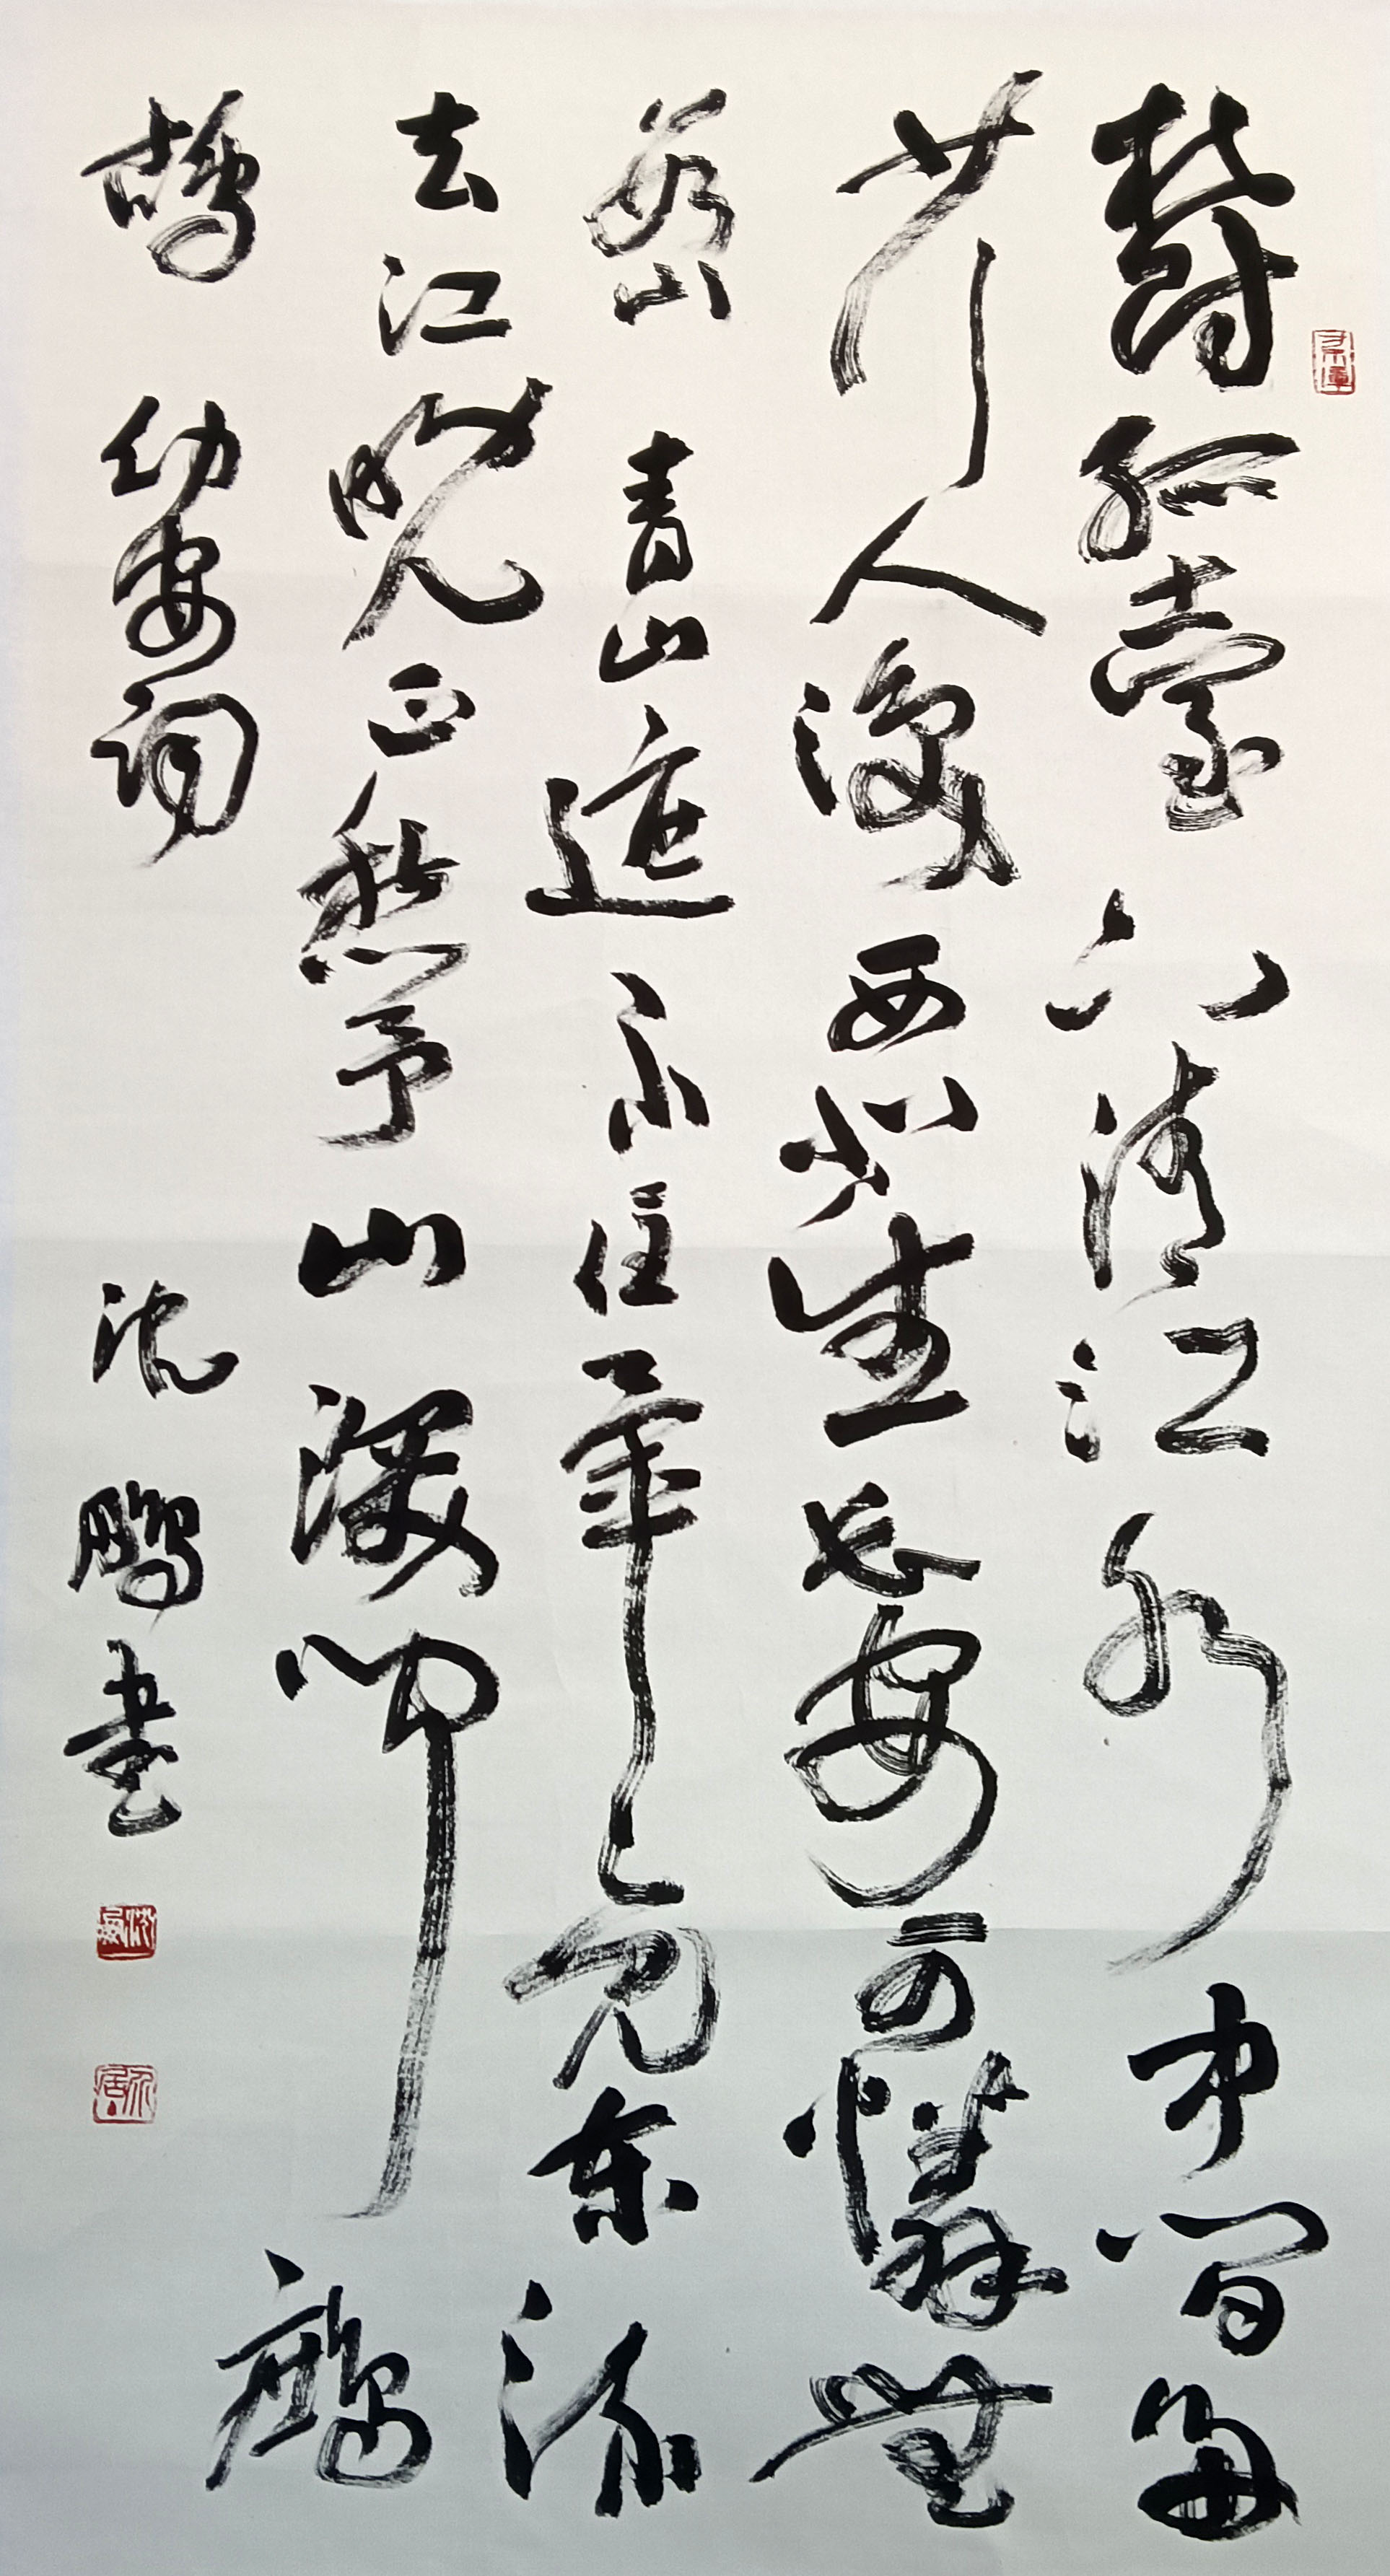 鬱孤臺下清江水中間多
少行人淚西北望長安可憐無
數山青山遮不住畢竟東流
去江晚正愁予山深聞鷓
鴣 幼安詞 沈鵬書
沈鵬